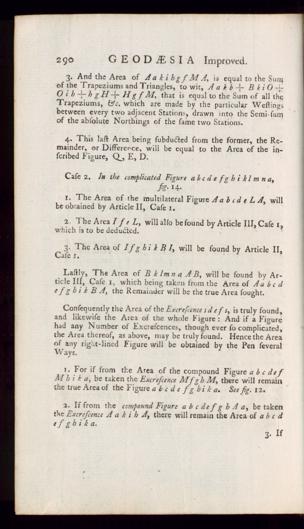 290 GEODÆSIA Improved.
3. And the Area of A a k i h g f M A, is equal to the Sum
of the Trapeziums and Triangles, to wit, A a k b + B k i O +
O i h + h g H + H g f M, that is equal to the Sum of all the
Trapeziums, &c. which are made by the particular Westings
between every two adjacent Stations, drawn into the Semi-sum
of the absolute Northings of the same two Stations.
4. This last Area being subducted from the former, the Re-
mainder, or Difference, will be equal to the Area of the in-
scribed Figure, Q, E, D.
Case 2. In the complicated Figure a b c d e f g h i k l m n a,
fig. 14.
1. The Area of the multilateral Figure A a b c d e L A, will
be obtained by Article II, Case 1.
2. The Area I f e L, will also be found by Article III, Case 1,
which is to be deducted.
3. The Area of I f g h i k B I, will be found by Article II,
Case 1.
Lastly, The Area of B k l m n a A B, will be found by Ar-
ticle III, Case 1, which being taken from the Area of A a b c d
e f g h i k B A, the Remainder will be the true Area sought.
Consequently the Area of the Excrescence s d e f s, is truly found,
and likewise the Area of the whole Figure: And if a Figure
had any Number of Excrescences, though ever so complicated,
the Area thereof, as above, may be truly found. Hence the Area
of any right-lined Figure will be obtained by the Pen several
Ways.
1. For if from the Area of the compound Figure a b c d e f
M h i k a, be taken the Excrescence M f g h M, there will remain
the true Area of the Figure a b c d e f g h i k a. See fig. 12.
2. If from the compound Figure a b c d e f g h A a, be taken
the Excrescence A a k i h A, there will remain the Area of a b c d
e f g h i k a.
3. If